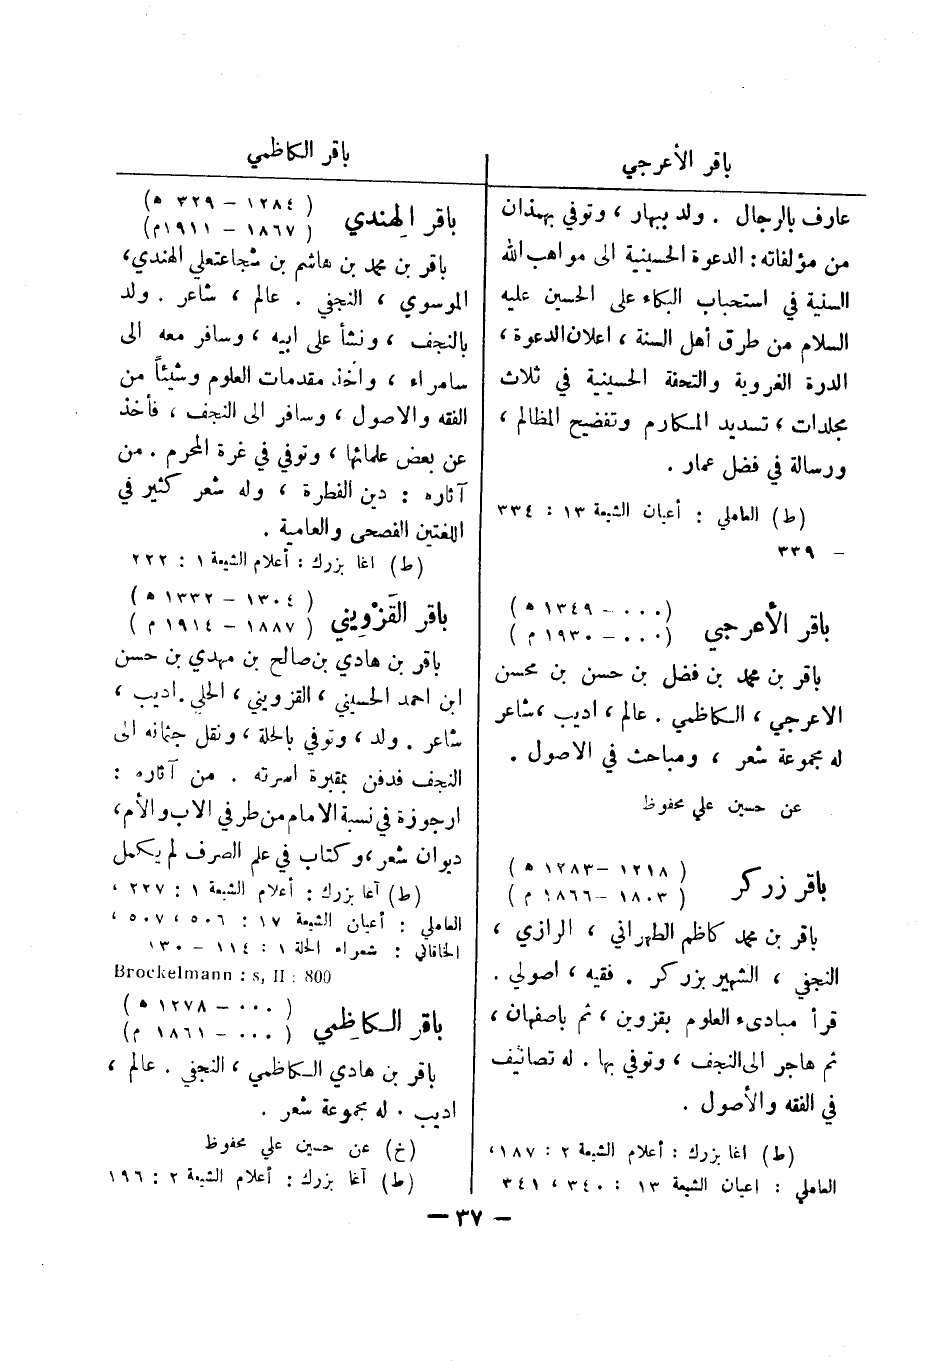 باقر الأعرجي
عارف بالرجال . ولد ببهار ، وتوفي بهمذان
من مؤلفاته : الدعوة الحسينية الى مواهب الله
السنية في استحباب البكاء على الحسين عليه
السلام من طرق أهل السنة ، اعلان الدعوة ،
الدرة الغروية والتحفة الحسينية في ثلاث
مجلدات ، تسديد المكارم وتفضيح المظالم ،
ورسالة في فضل عمار .
(ط) العاملي : أعيان الشيعة ١٣ : ٣٣٤
– ٣٣٩
باقر الأعرجي
(٠٠٠ – ١٣٤٩ ه)
(٠٠٠ – ١٩٣٠ م)
باقر بن محمد بن فضل بن حسن بن محسن
الاعرجي ، الكاظمي . عالم ، اديب ، شاعر
له مجموعة شعر ، ومباحث في الاصول .
عن حسين علي محفوظ
باقر زركر
(١٢١٨ – ١٢٨٣ ه)
(١٨٠٣ – ١٨٦٦ م)
باقر بن محمد كاظم الطهراني ، الرازي ،
النجفي ، الشهير بزركر . فقيه ، اصولي .
قرأ مبادىء العلوم بقزوين ، ثم باصفهان ،
ثم هاجر الى النجف ، وتوفي بها . له تصانيف
في الفقه والأصول .
(ط) اغا بزرك : أعلام الشيعة ٢ : ١٨٧ ،
العاملي : اعيان الشيعة ١٣ : ٣٤٠ ، ٣٤١
باقر الكاظمي
باقر الهندي
(١٢٨٤ – ٣٢٩ ه)
(١٨٦٧ – ١٩١١م)
باقر بن محمد بن هاشم بن شجاعتعلي الهندي ،
الموسوي ، النجفي . عالم ، شاعر . ولد
بالنجف ، ونشأ على ابيه ، وسافر معه الى
سامراء ، واخذ مقدمات العلوم وشيئاً من
الفقه والاصول ، وسافر الى النجف ، فأخذ
عن بعض علمائها ، وتوفي في غرة المحرم . من
آثاره : دين الفطرة ، وله شعر كثير في
اللغتين الفصحى والعامية .
(ط) اغا بزرك : أعلام الشيعة ١ : ٢٢٢
باقر القَزْويني
(١٣٠٤ – ١٣٣٢ ه)
(١٨٨٧ – ١٩١٤ م)
باقر بن هادي بن صالح بن مهدي بن حسن
ابن احمد الحسيني ، القزويني ، الحلي . اديب ،
شاعر . ولد ، وتوفي بالحلة ، ونقل جثمانه الى
النجف فدفن بمقبرة اسرته . من آثاره :
ارجوزة في نسبة الامام من طرفي الاب والأم ،
ديوان شعر ، وكتاب في علم الصرف لم يكمل
(ط) آغا بزرك : أعلام الشيعة ١ : ٢٢٧ ،
العاملي : أعيان الشيعة ١٧ : ٥٠٦ ، ٥٠٧ ،
الخاقاني : شعراء الحلة ١ : ١١٤ – ١٣٠
Brockelmann : s, II : 800
باقر الكاظِمي
(٠٠٠ – ١٢٧٨ ه)
(٠٠٠ – ١٨٦١ م)
باقر بن هادي الكاظمي ، النجفي . عالم ،
اديب . له مجموعة شعر .
(خ) عن حسين علي محفوظ
(ط) آغا بزرك : أعلام الشيعة ٢ : ١٩٦
– ٣٧ –